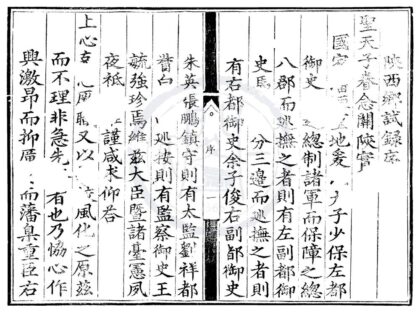 陜西鄉試錄序
聖天子眷念關陜實
國 地爰 子少保左都
御史 總制諸軍而保障之總
八郡而廵撫之者則有左副都御
史馬 分三邊而廵撫之者則
有右都御史余子俊右副都御史
序 一
朱英張鵬鎮守則有太監劉祥都
督白 廵按則有監察御史王
毓強珍焉維兹大臣暨諸臺憲夙
夜祗 謹咸求仰答
上心 又以 風化之原兹
而不理非急先 有也乃恊心作
興激昂而抑厲 而藩臬重臣右